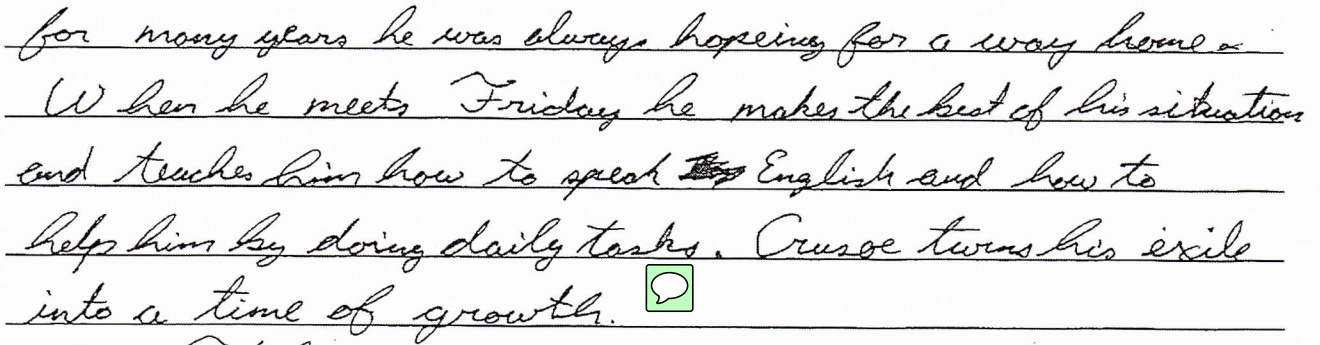 for many years he was always hopeing for a way home.
When he meets Friday he makes the best of his situation
and teaches him how to speak English and how to
help him by doing daily tasks. Crusoe turns his exile
into a time of growth.